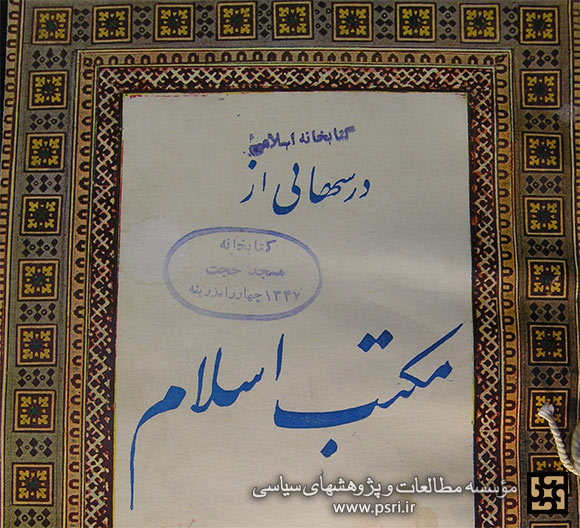 کتابخانه اسلامی
درسهایی از
کتابخانه
مسجد حجت
۱۳۴۷ چهارراه زرینه
مکتب اسلام
مؤسسه مطالعات و پژوهشهای سیاسی
www.psri.ir